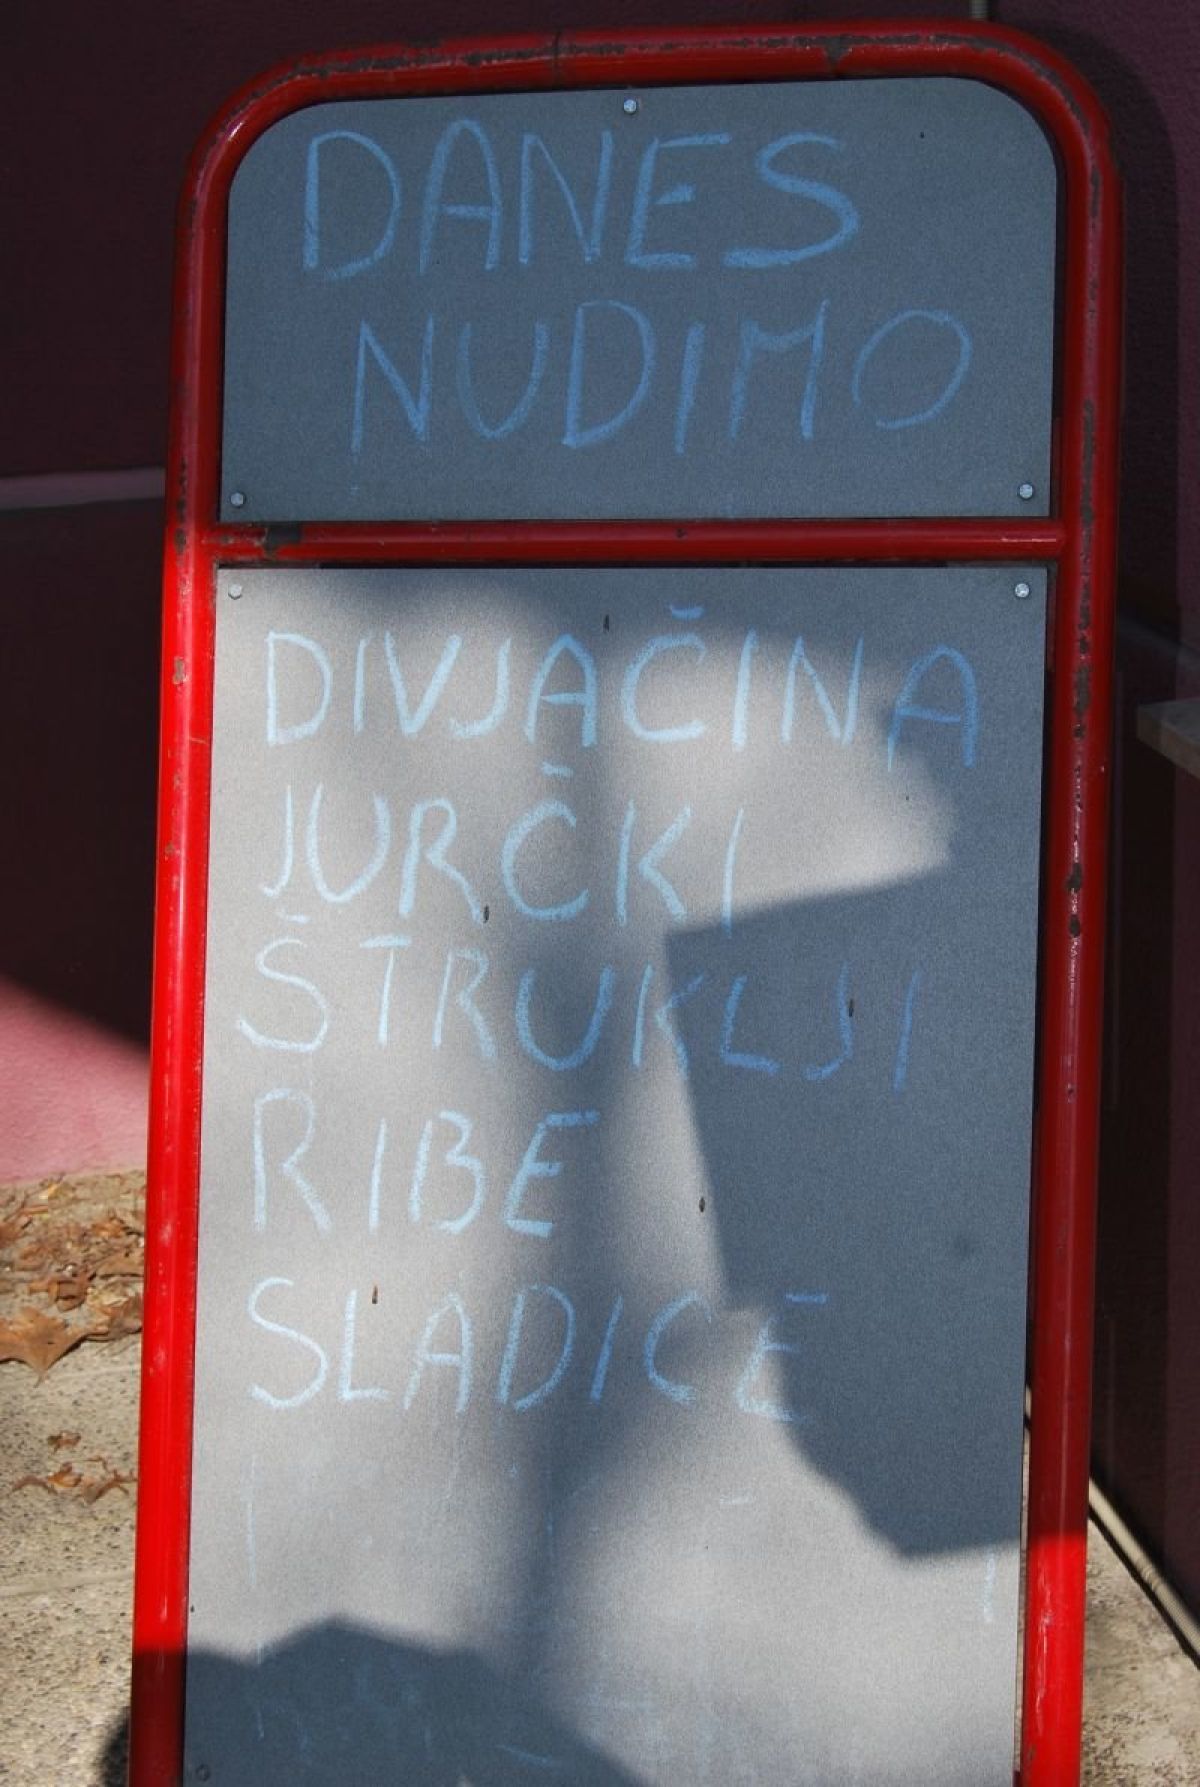 DANES
NUDIMO
DIVJAČINA
JURČKI
ŠTRUKLJI
RIBE
SLADICE